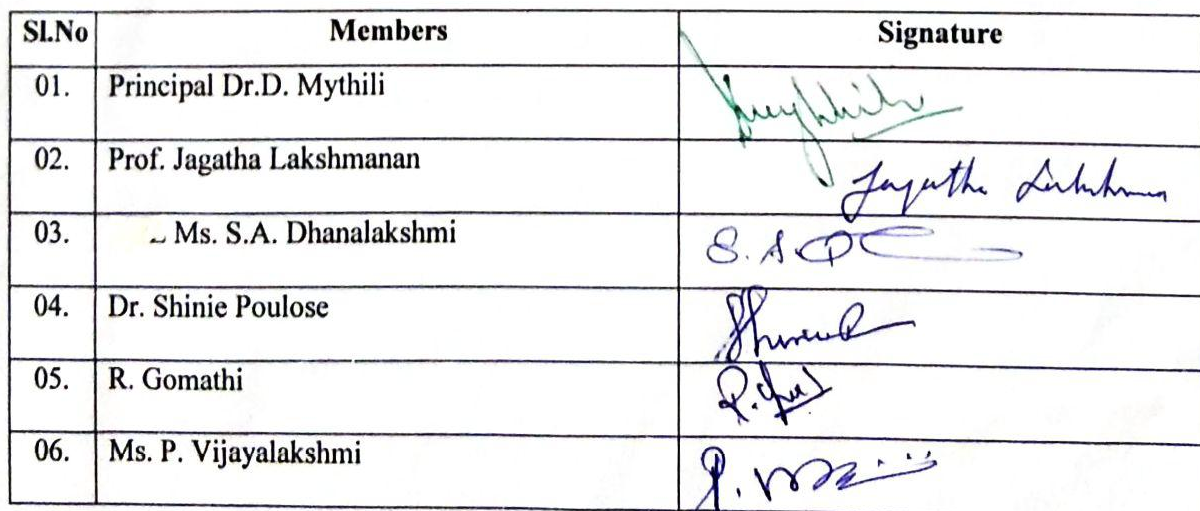 Sl.No Members Signature
01. Principal Dr.D. Mythili
02. Prof. Jagatha Lakshmanan Jagatha
03. Ms. S.A. Dhanalakshmi S. A
04. Dr. Shinie Poulose
05. R. Gomathi
06. Ms. P. Vijayalakshmi